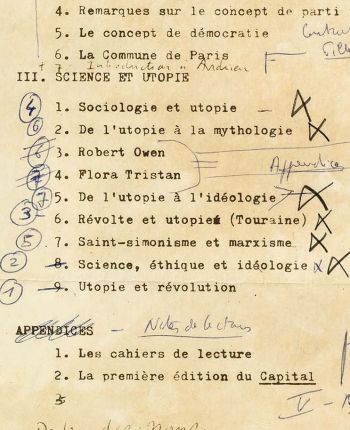 4. Remarques sur le concept de parti
5. Le concept de démocratie
6. La Commune de Paris
+ 7 Introduction
III. SCIENCE ET UTOPIE
4 1. Sociologie et utopie —
6 2. De l'utopie à la mythologie
3. Robert Owen
Appendice
4. Flora Tristan
7 5. De l'utopie à l'idéologie
3 6. Révolte et utopie (Touraine)
5 7. Saint-simonisme et marxisme
2 8. Science, éthique et idéologie
1 9. Utopie et révolution
APPENDICES — Notes de lecture
1. Les cahiers de lecture
2. La première édition du Capital
3
V -